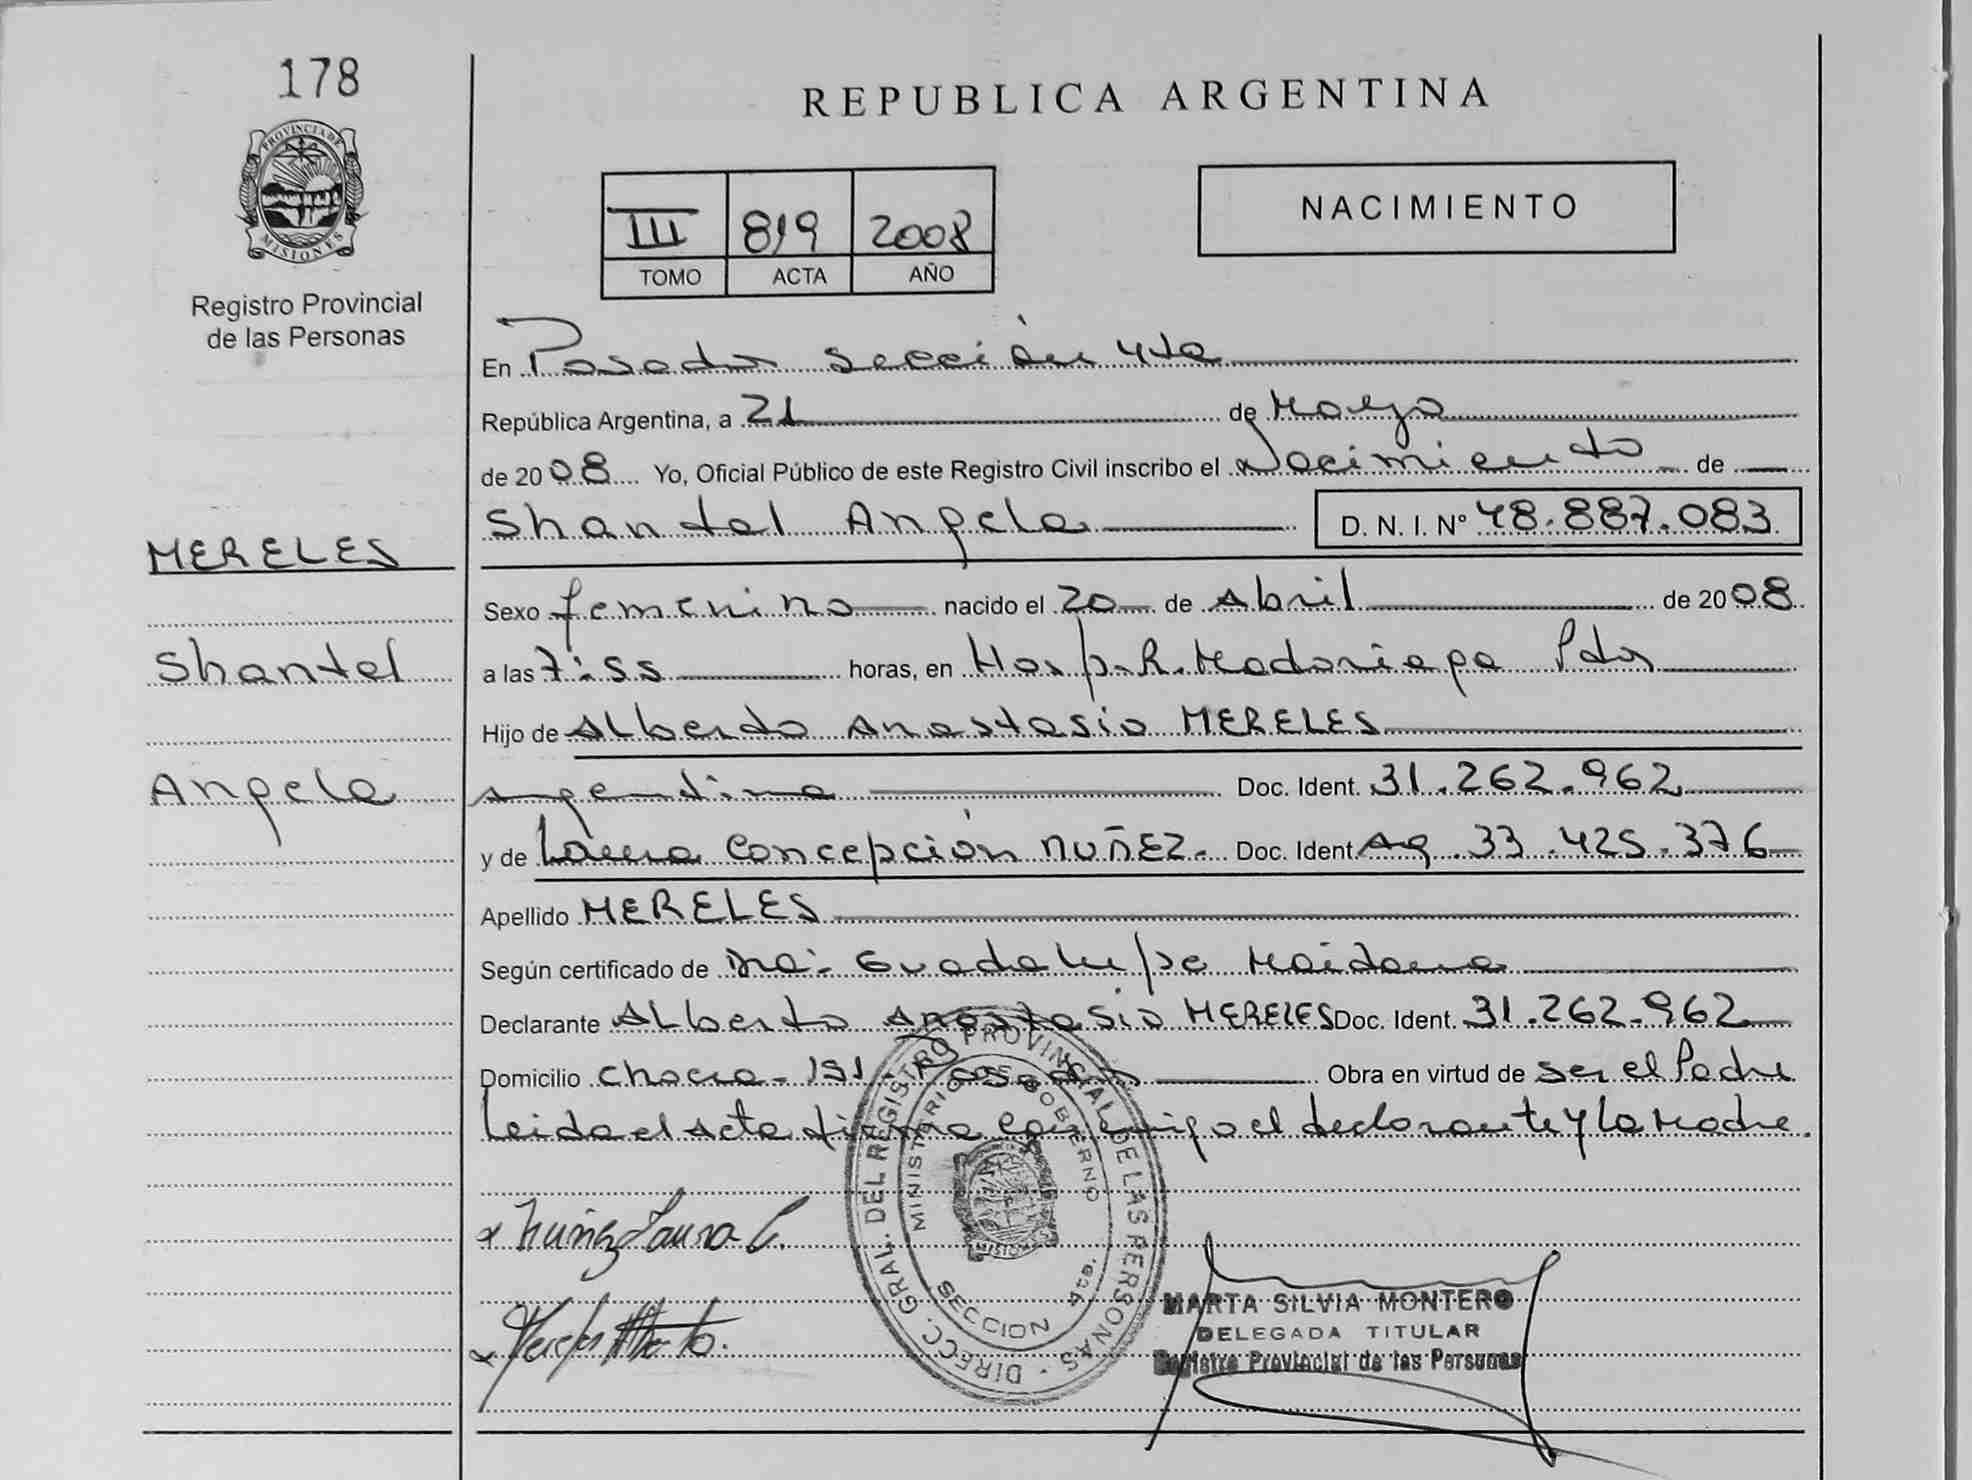 178
REPUBLICA ARGENTINA
PROVINCIA DE
MISIONES
Registro Provincial
de las Personas
III 819 2008
TOMO ACTA AÑO
NACIMIENTO
En Posadas sección 4ta
República Argentina, a 21 de Mayo
de 2008 Yo, Oficial Público de este Registro Civil inscribo el Nacimiento de
Shantal Angela D. N. I. N° 48.887.083
MERELES
Sexo femenino nacido el 20 de Abril de 2008
Shantel
a las 7:55 horas, en Hosp. R. Madariaga Pdas
Hijo de Alberto Anastasio MERELES
Angela
argentina Doc. Ident. 31.262.962
y de Laura Concepción NUÑEZ. Doc. Ident Ag. 33.425.376
Apellido MERELES
Según certificado de Dra: Guadalupe Maidana
Declarante Alberto Anastasio MERELES Doc. Ident. 31.262.962
Domicilio chacra - 151 - Posadas Obra en virtud de ser el Padre
Leida el Acta firma conmigo el declarante y la Madre.
DIRECC. GRAL. DEL REGISTRO PROVINCIAL DE LAS PERSONAS
MINISTERIO DE GOBERNO
MISIONES
SECCION
x Nuñez Laura C.
x Mereles Alberto.
MARTA SILVIA MONTERO
DELEGADA TITULAR
Registro Provincial de las Personas